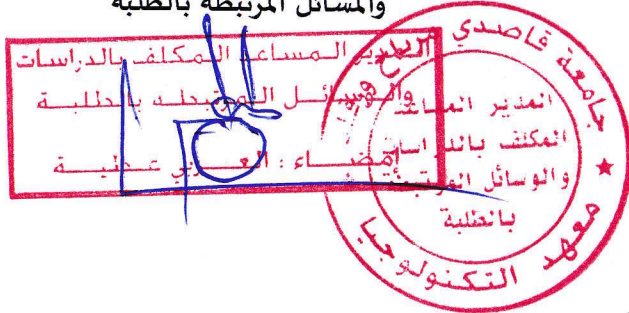 والمسائل المرتبطة بالطلبة
المدير المساعد المكلف بالدراسات
والوسائل المرتبطة بالطلبة
إمضاء : العربي عطية
جامعة قاصدي مرباح
المدير المساعد
المكلف بالدراسات
والوسائل المرتبطة
بالطلبة
معهد التكنولوجيا